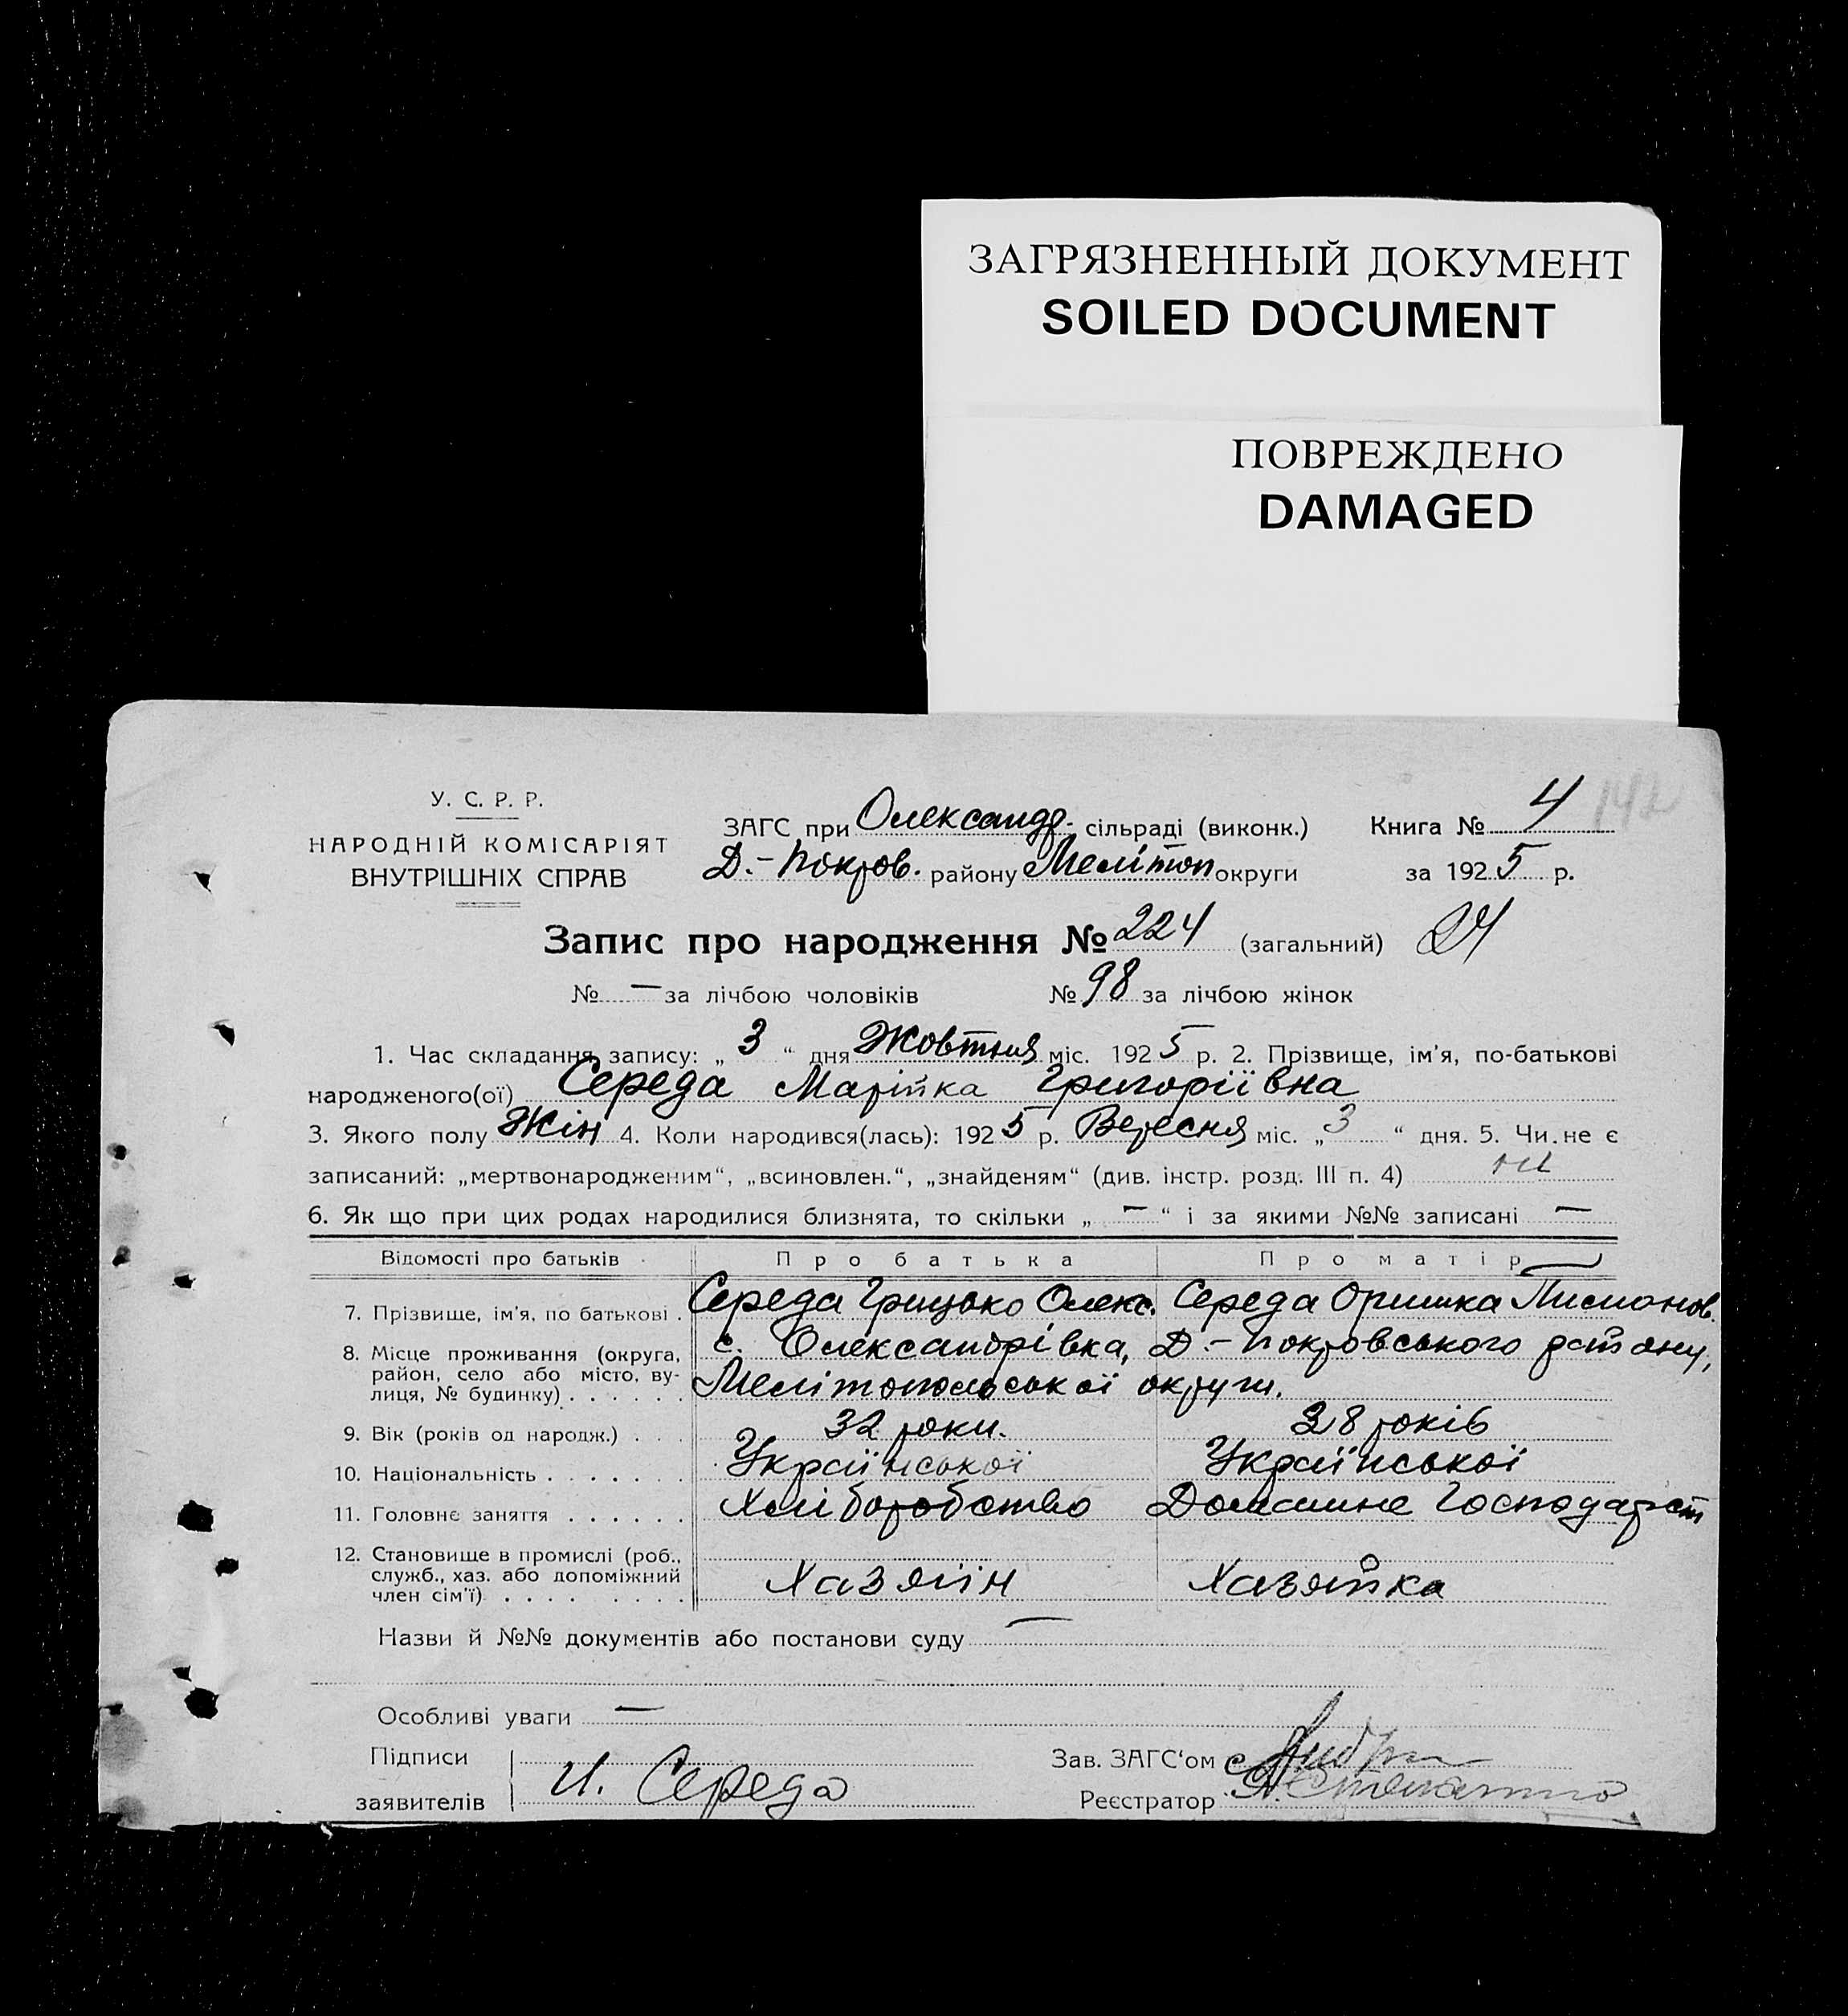 ЗАГРЯЗНЕННЫЙ ДОКУМЕНТ
SOILED DOCUMENT
ПОВРЕЖДЕНО
DAMAGED
У. С. Р. Р.
НАРОДНІЙ КОМІСАРІЯТ
ВНУТРІШНІХ СПРАВ
ЗАГС при Олександр. сільраді (виконк.)
Д.-Покров. району Мелітоп округи
Книга № 4 142
за 1925 р.
Запис про народження № 224 (загальний) 24
№ — за лічбою чоловіків № 98 за лічбою жінок
1. Час складання запису: „3“ дня Жовтня міс. 1925 р. 2. Прізвище, ім'я, по-батькові
народженого(ої) Середа Марійка Григоріївна
3. Якого полу Жін 4. Коли народився(лась): 1925 р. Вересня міс. „3“ дня. 5. Чи не є
записаний: „мертвонародженим“, „всиновлен.“, „знайденям“ (див. інстр. розд. III п. 4) ні
6. Як що при цих родах народилися близнята, то скільки „—“ і за якими №№ записані —
Відомості про батьків Про батька Про матір
7. Прізвище, ім'я, по батькові . Середа Грицько Олекс. Середа Оришка
8. Місце проживання (округа, район, село або місто, вулиця, № будинку) . . . . . .
с. Олександрівка, Д.-Покровського району,
Мелітопольської округи.
9. Вік (років од народж.) . . . 32 роки. 28 років
10. Національність . . . . . . . Української Української
11. Головне заняття . . . . . . Хліборобство Домашне Господарст
12. Становище в промислі (роб., служб., хаз. або допоміжний член сім'ї) . . . . . . . .
Хазяїн Хазяйка
Назви й №№ документів або постанови суду —
Особливі уваги —
Підписи
заявителів И. Середа
Зав. ЗАГС'ом
Реєстратор